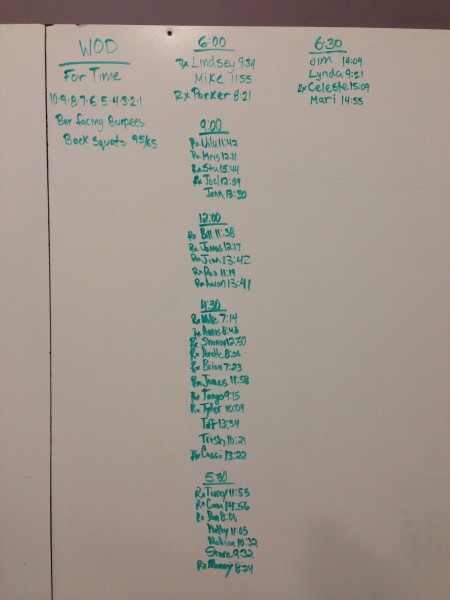 WOD
For Time
10-9-8-7-6-5-4-3-2-1
Bar facing Burpees
Back Squats 95/65
6:00
Rx Lindsey 9:34
Mike 11:55
Rx Parker 8:21
9:00
Rx 11:42
Rx Kris 12:11
Rx Stu 15:44
Rx Joel 12:59
Jenn 13:50
12:00
Rx Bill 11:38
Rx James 12:17
Rx Jim 13:42
Rx 11:19
Rx Aaron 13:41
4:30
Rx Mike 7:14
Rx 8:43
Rx Shannon 12:50
Rx
Rx Brian 7:23
Rx James 11:58
Rx Tango 9:15
Rx Tyler 10:04
Tiff 13:34
Trish 10:21
Rx Cassi 13:22
5:30
Rx 11:55
Rx 14:56
Rx Dan 8:01
Kathy 11:05
Melissa 10:32
9:32
Rx Manny 8:24
6:30
Jim 14:09
Lynda 9:21
Rx Celeste 15:09
Mari 14:55